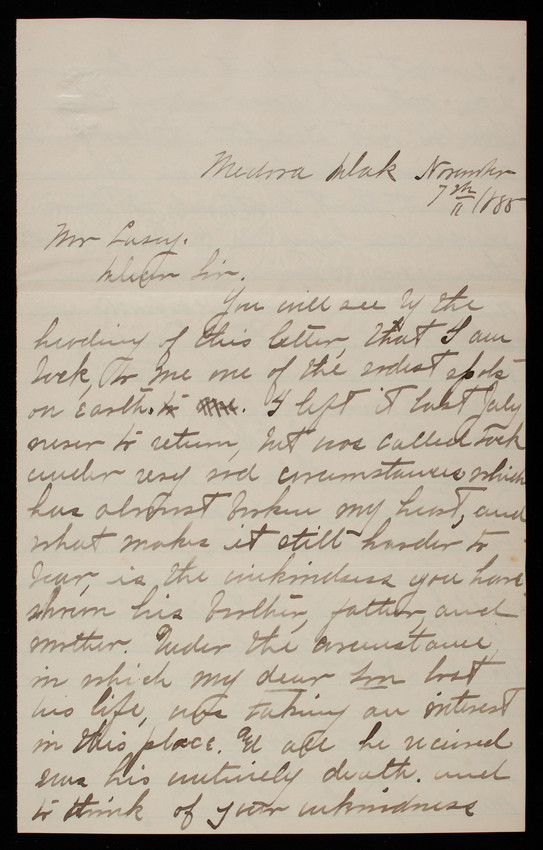 Medora Dak November
7th
11/1885
Mr Casey.
Dear Sir.
You will see by the
heading of this letter, that I am
back, to me one of the sadest spots
on earth. to. I left it last July
never to return, but was called back
under very sad circumstances which
has almost broken my heart, and
what makes it still harder to
bear, is the unkindness you have
shown his brother, father, and
mother. Under the circumstance
in which my dear son lost
his life, was taking an interest
in this place. &
all he recieved
was his untimely death. and
to think of your unkindness